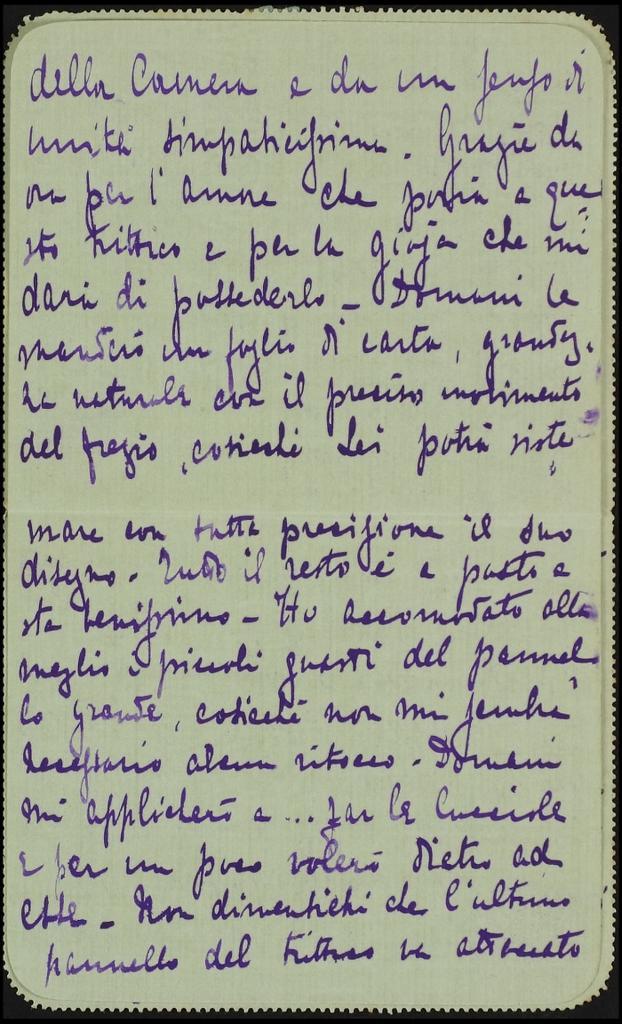 della Camera e da un senso di
unità simpaticissima. Grazie da
ora per l'amore che porrà a que
sto trittico e per la gioja che mi
darà di possederlo – Domani le
manderò un foglio di carta, grandez.
za naturale con il preciso movimento
del fregio, cosicchè Lei potrà siste
mare con tutta precisione il suo
disegno. Tutto il resto è a posto e
sta benissimo – Ho accomodato alla
meglio i piccoli guasti del pannel
lo grande, cosicchè non mi sembra
necessario alcun ritocco. Domani
mi applicherò a ... far le lucciole
e per un poco volerò dietro ad
esse – Non dimentichi che l'ultimo
pannello del trittico va attaccato